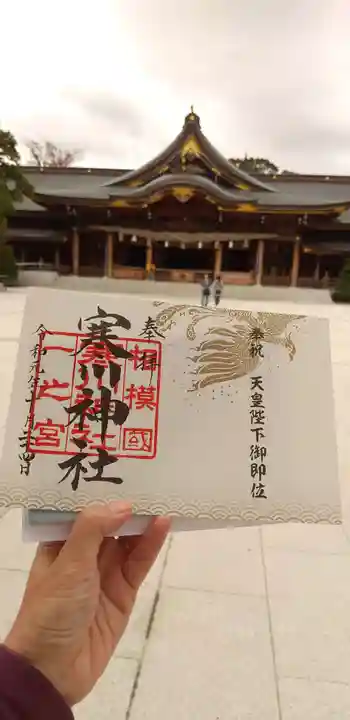 奉祝 天皇陛下御即位
奉拝
相模國
寒川神社
寒川神社
一之宮
令和元年十月四日